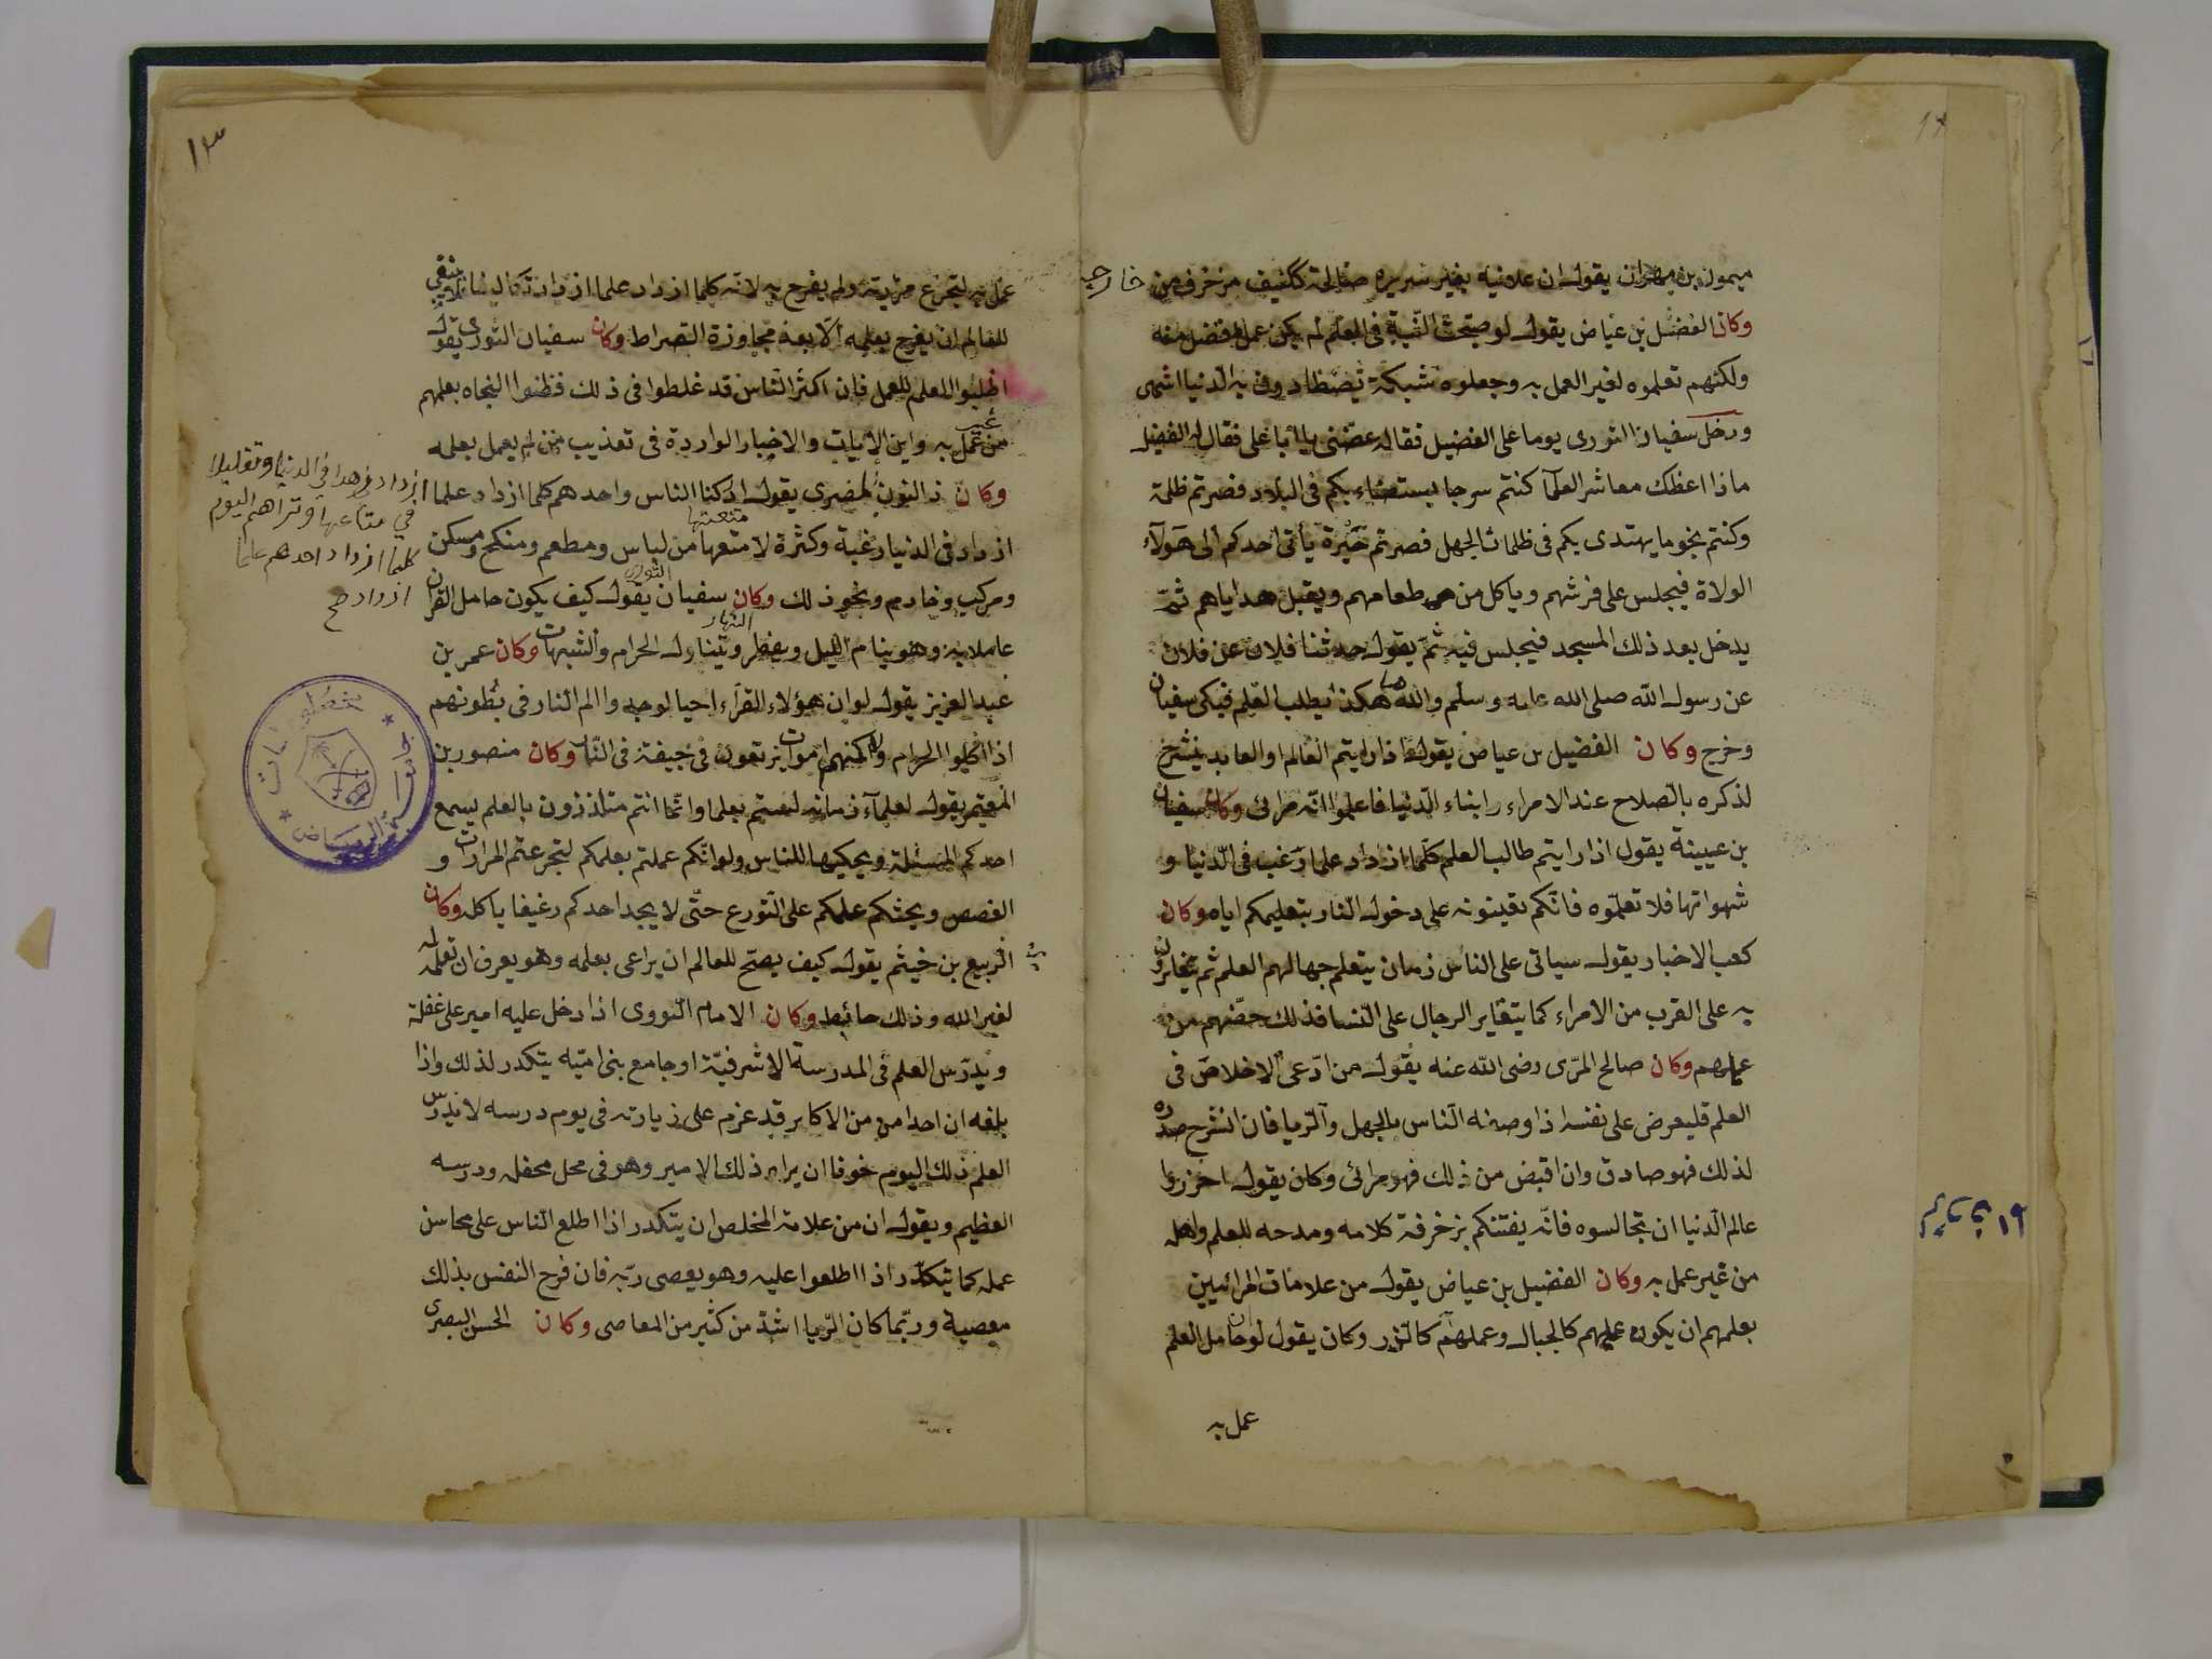 ميمون بن مهران يقول ان علانيه بغير سريره صالحة ككنيف مزخرف من خارجه
وكان الفضيل بن عياض يقول لو صحت النية في العلم لم يكن عمل افضل منه
ولكنهم تعلموه لغير العمل به وجعلوه شبكة يصطادون به الدنيا انتهى
ودخل سفيان الثورى يوما على الفضيل فقال عظني يا ابا على فقال له الفضيل
ماذا اعظك معاشر العلمآ كنتم سرجا يستضاء بكم في البلاد فصرتم ظلمة
وكنتم نجوما يهتدى بكم في ظلمات الجهل فصرتم حيرة يأتى احدكم الى هؤلآء
الولاة فيجلس على فرشهم وياكل من طعامهم ويقبل هداياهم ثم
يدخل بعد ذلك المسجد فيجلس فيه ثم يقول حدثنا فلان عن فلان
عن رسول الله صلى الله عليه وسلم والله ما هكذا يطلب العلم فبكى سفيان
وخرج وكان الفضيل بن عياض يقول اذا رايتم العالم او العابد ينشرح
لذكره بالصلاح عند الامراء وابناء الدنيا فاعلموا انه مرائ وكان سفيان
بن عيينة يقول اذا رايتم طالب العلم كلما ازداد علما رغب في الدنيا و
شهواتها فلا تعلموه فانكم تعينونه على دخول النار بتعليمكم اياه وكان
كعب الاحبار يقول سياتى على الناس زمان يتعلم جهالهم العلم ثم يتغايرون
به على القرب من الامراء كما يتغاير الرجال على النسا فذلك حضهم من
علمهم وكان صالح المرى رضى الله عنه يقول من ادعى الاخلاص في
العلم فليعرض على نفسه اذا وصفه الناس بالجهل والريا فان انشرح صدره
لذلك فهو صادق وان اقبض من ذلك فهو مرائى وكان يقول احذروا
عالم الدنيا ان تجالسوه فانه يفتنكم بزخرفة كلامه ومدحه للعلم واهله
من غير عمل به وكان الفضيل بن عياض يقول من علامات المرائيين
بعلمهم ان يكون علمهم كالجبال وعملهم كالذر وكان يقول لو ان حامل العلم
عمل به
١٣
عمل به لتجرع مرارته ولم يفرح به لانه كلما ازداد علما ازداد
للعالم ان يفرح بعلمه الا بعد مجاوزة الصراط وكان سفيان الثورى يقول
اطلبوا العلم للعمل فان اكثر الناس قد غلطوا في ذلك فظنوا النجاه بعلمهم
من غير عمل به واين الايات والاخبار الواردة في تعذيب من لم يعمل بعلمه
وكان ذا النون المصرى يقول ادركنا الناس واحدهم كلما ازداد علما
ازداد زهدا في الدنيا وتقليلا
في متاعها وتراهم اليوم
كلما ازداد احدهم علما
ازداد صح
ازداد في الدنيا رغبة وكثرة لامتعها من لباس ومطعم ومنكح ومسكن
ومركب وخادم ونحو ذلك وكان سفيان الثورى يقول كيف يكون حامل القران
عاملا به وهو ينام الليل ويفطر النهار ويتناول الحرام والشبهات وكان عمر بن
عبد العزيز يقول لو ان هؤلاء القرآء احيا لوجدوا الم النار في بطونهم
اذا اكلوا الحرام ولكنهم اموات يرتعون في جيفة في النار وكان منصور بن
المعتمر يقول لعلمآء زمانه لستم بعلما وانما انتم متلذذون بالعلم يسمع
احدكم المسئلة ويحكيها للناس ولو انكم عملتم بعلمكم لتجرعتم المرارات و
الغصص ويحثكم علمكم على التورع حتى لا يجد احدكم رغيفا ياكله وكان
الربيع بن خيثم يقول كيف يصح للعالم ان يراعى بعلمه وهو يعرف ان تعلمه
لغير الله وذلك حابط وكان الامام النووى اذا دخل عليه امير على غفلة
ويدرس العلم في المدرسة الاشرفية او جامع بنى اميه يتكدر لذلك واذا
بلغه ان احدا من الاكابر قد عزم على زيارته في يوم درسه لا يدرس
العلم ذلك اليوم خوفا ان يراه ذلك الامير وهو في محل محفله ودرسه
العظيم ويقول ان من علامة المخلص ان يتكدر اذا اطلع الناس على محاسن
عمله كما يتكدر اذا اطلعوا عليه وهو يعصى ربه فان فرح النفس بذلك
معصية وربما كان الريا اشد من كثير من المعاصى وكان الحسن البصرى
جامعة الرياض
مخطوطات